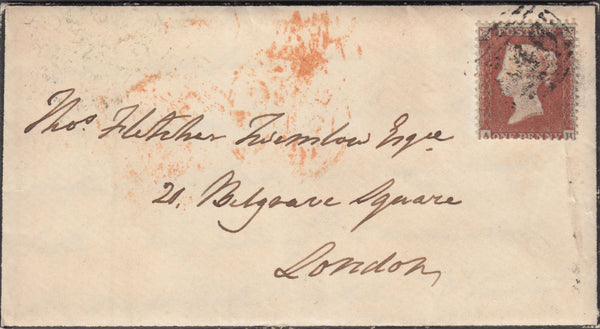 POSTAGE
ONE PENNY
Thos Fletcher Twemlow Esqre
21, Belgrave Square
London,